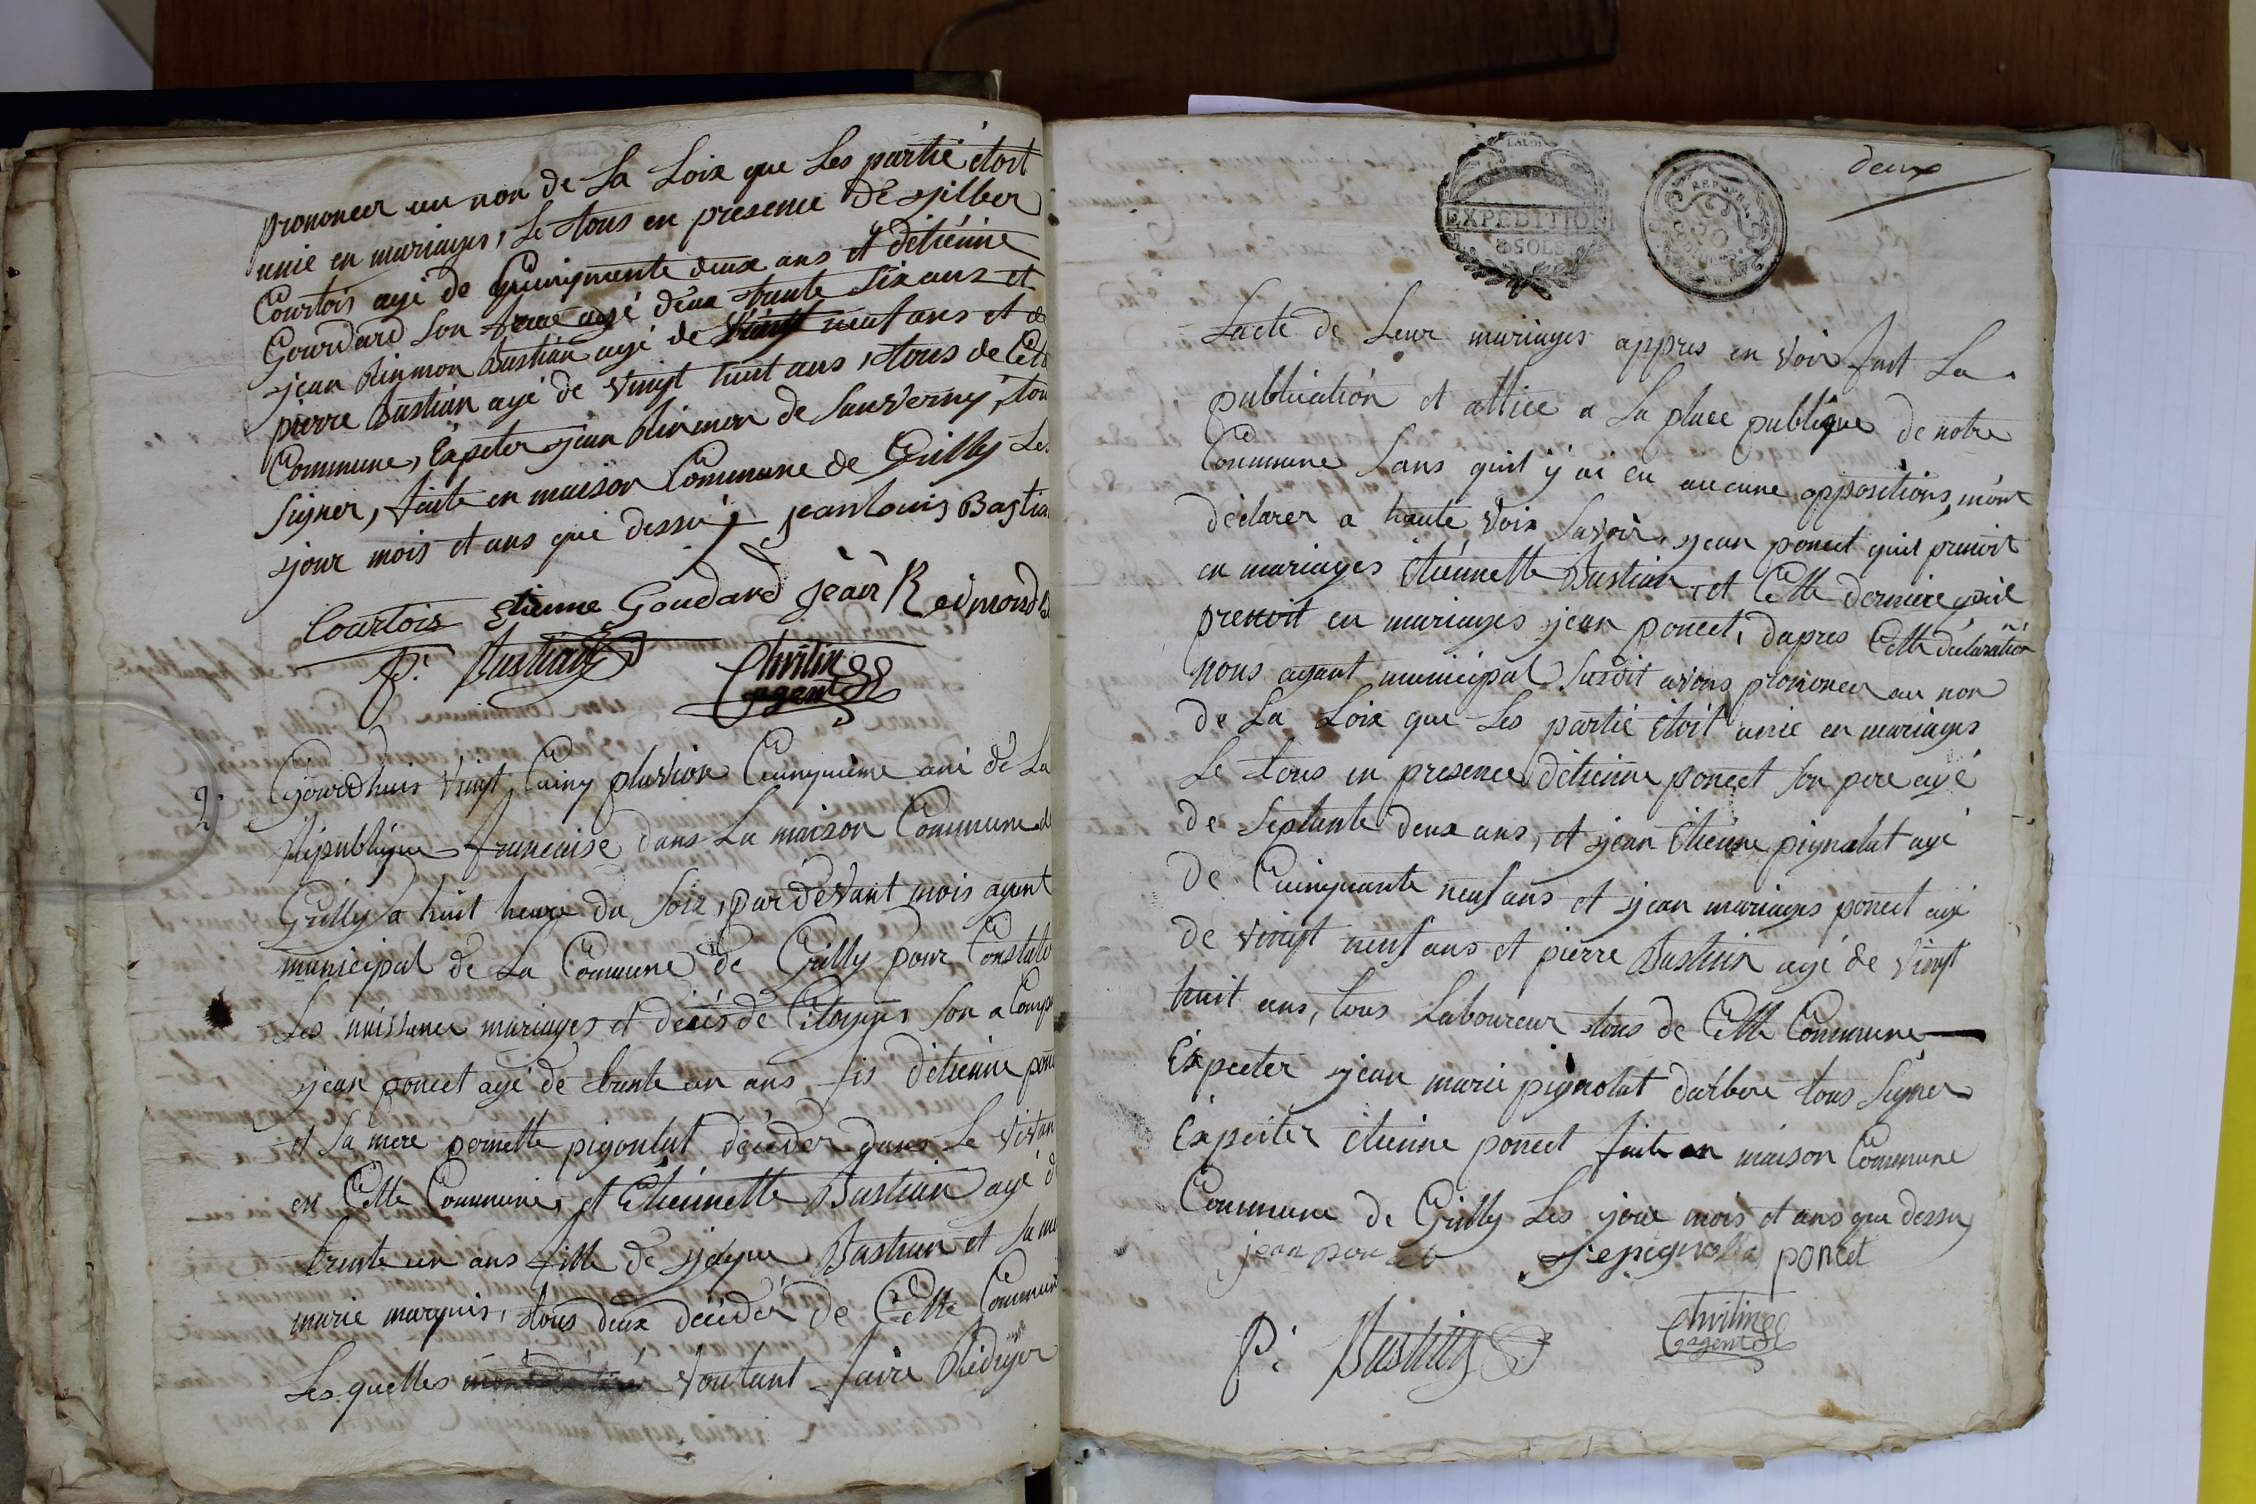 prononcer au non de La Loix que Les partie étoit
unie en mariages, Le tous en presence de gilber
Courtois agé de Cuinquante deux ans et détiénne
Gourdard son frere agé deux trente six ans et
jean Reimon Bastian agé de vingt neuf ans et de
pierre Bastian agé de vingt huit ans, tous de Cette
Commune, Exseter jean Reimon de Sauverny, tous
signer, faite en maison Commune de Grilly Les
jour mois et ans que dessu jean louis Bastian
Courtois etienne Goudard jean Reimond
p.r Bastian
Chvitin
agent
2.
Ojourdhuis vingt Cuinq pluviose Cuinquieme ané de La
République francaise dans La maison Commune de
Grilly a huit heure du soir, par devant nois agent
municipal de La Commune de Grilly pour Constater
Les naissance mariages et décés de Citoyens son a Comp
jean poncet agé de trente un ans fis détienne ponc
et sa mere pernette pigonlat décéder dans Le vivan
en Cette Commune, et Etiénnette Bastian agé de
trente un ans fille de jaque Bastian et sa me
marie marquis, tous deux décéder de Cette Commune
Les quelles voulant faire Rédiger
deux
LA LOI
EXPEDITION
8 SOLS
REPUB. FRA
Lacte de Leur mariages appres en voir fait La
publication et affice a La place publique de notre
Commune sans quil y ai eu aucune oppositions, mont
déclarer a haute voix savoir, jean poncet quil prenoit
en mariages étiénnette Bastian, et Cette derniere quil
prenoit en mariages jean poncet, dapres Cette déclaration
nous agant municipal susdit avons prononcer au non
de La Loix que Les partie étoit unie en mariages
Le tous en presence détienne poncet son pere agé
de septente deux ans, et jean étiénne pignalat agé
de Cuinquante neuf ans et jean mariages poncet agé
de vingt neuf ans et pierre Bastian agé de vingt
huit ans, tous Laboureur tous de Cette Commune
Exsecter jean marie pignolat darbere tous signer
Exsecter étienne poncet faite en maison Commune
Commune de Grilly Les jour mois et ans que dessu
jean poncet j e pignolat poncet
P: Bastian
Chvitin
agent